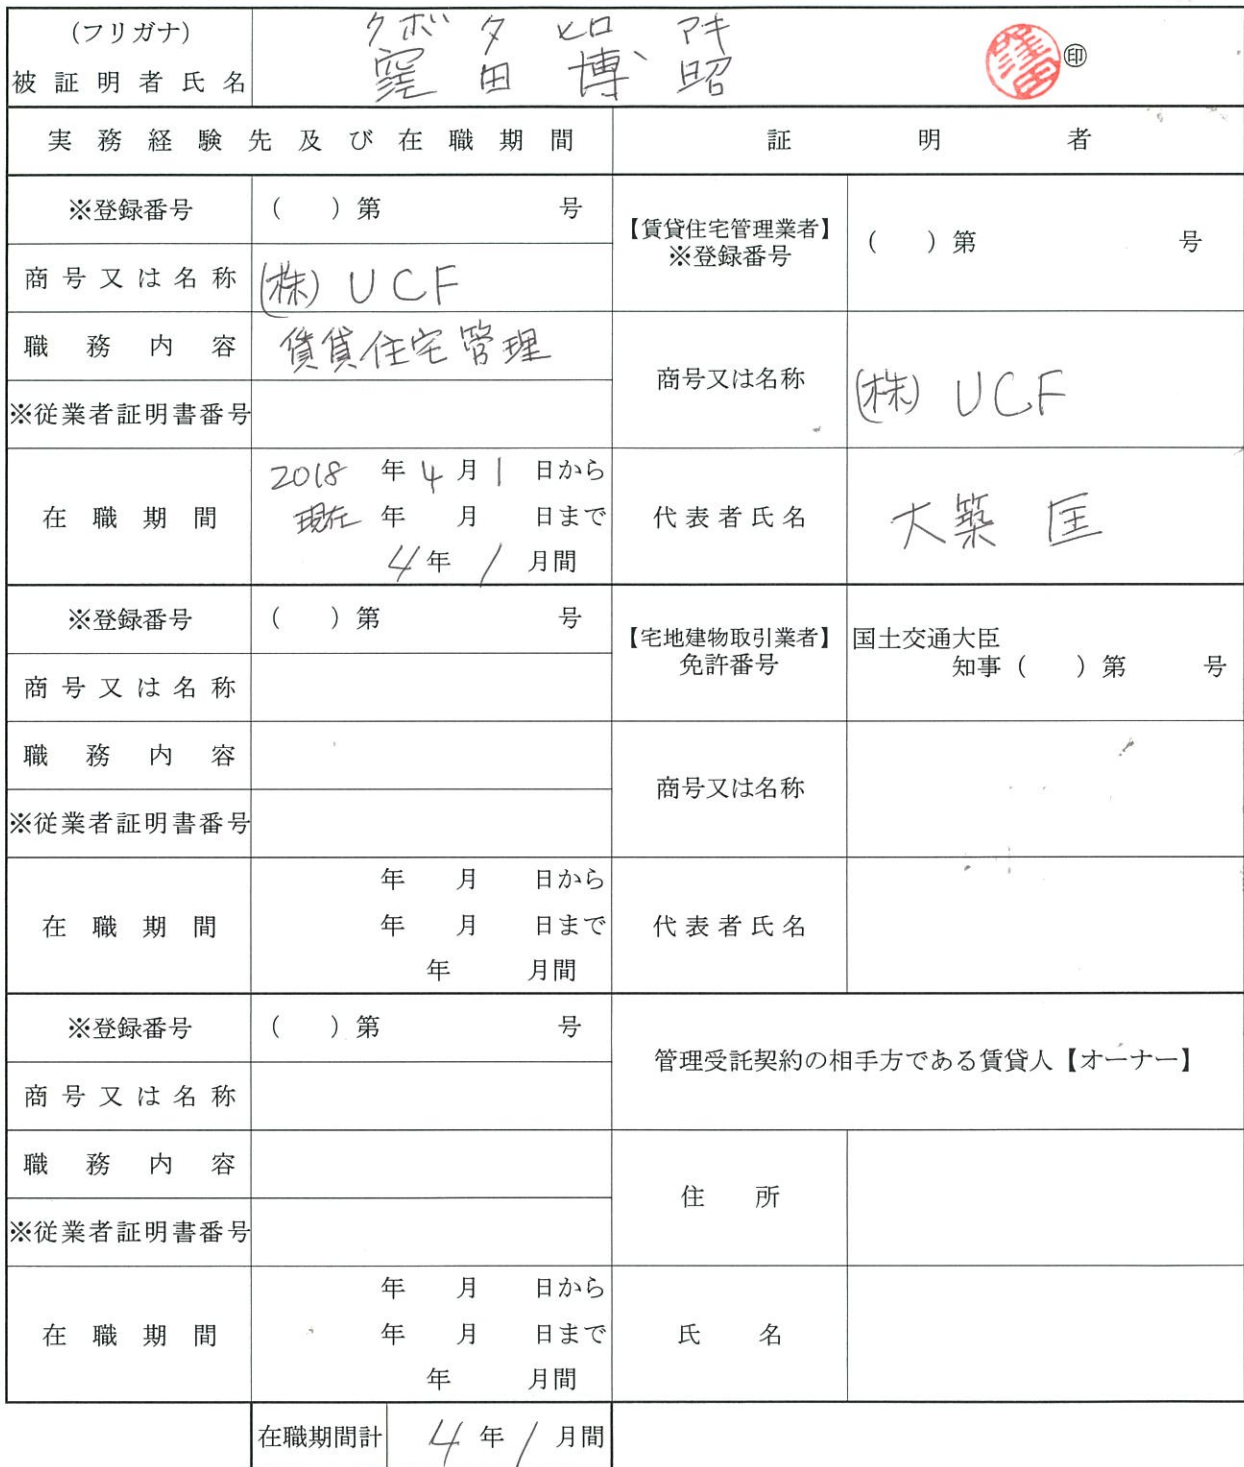 (フリガナ) クボタ ヒロ アキ
被証明者氏名 窪田 博昭 窪田 ㊞
実務経験先及び在職期間 証明者
※登録番号 ( )第 号 【賃貸住宅管理業者】※登録番号 ( )第 号
商号又は名称 (株) UCF
職務内容 賃貸住宅管理 商号又は名称 (株) UCF
※従業者証明書番号
在職期間 2018 年 4 月 1 日から 代表者氏名 大築 匡
現在 年 月 日まで
4 年 1 月間
※登録番号 ( )第 号 【宅地建物取引業者】免許番号 国土交通大臣
知事( )第 号
商号又は名称
職務内容 商号又は名称
※従業者証明書番号
在職期間 年 月 日から 代表者氏名
年 月 日まで
年 月間
※登録番号 ( )第 号 管理受託契約の相手方である賃貸人【オーナー】
商号又は名称
職務内容 住所
※従業者証明書番号
在職期間 年 月 日から 氏名
年 月 日まで
年 月間
在職期間計 4 年 1 月間